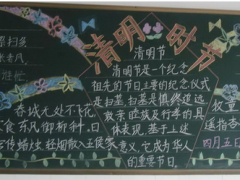 清明时节
清明节
清明节是一个纪念
祖先的节日主要的纪念仪式
是扫墓,扫墓是慎终追远
敦亲睦族行孝的具
体表现,基于上述
意义,它成为华人
的重要节日
春城无处不飞
食东风御柳斜。日
传蜡烛,轻烟散入
牧童
遥指杏
四月五